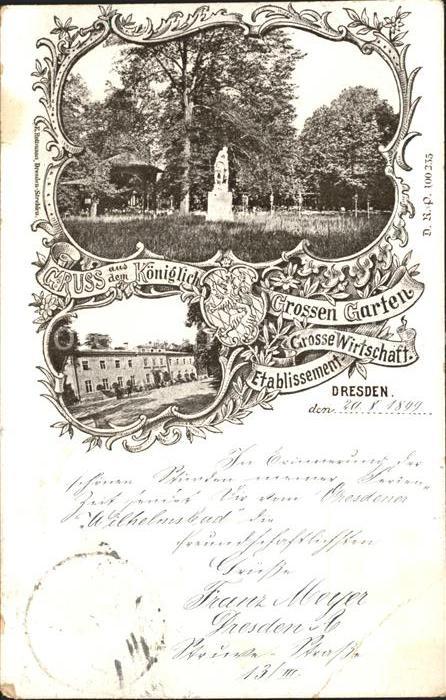 F. E. Rottmann, Dresden-Striesen.
D. R. P. 100235
GRUSS aus dem Königlich
Grossen Garten.
Grosse Wirtschaft.
Etablissement
DRESDEN.
den 20. 8. 1899
In Erinnerung der
schönen Stunden meiner Ferien-
Zeit sendet Dir vom Dresdener
"Wilhelmsbad" die
freundschaftlichsten
Grüße
Franz Meyer
Dresden A
Struve-Straße
13/III.